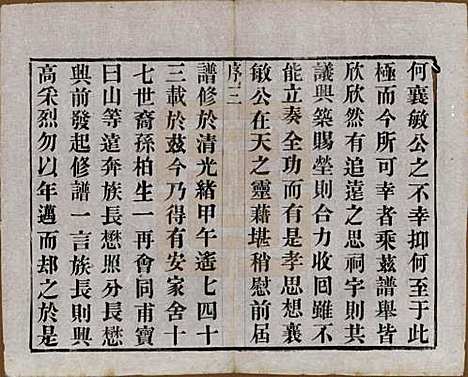 何襄敏公之不幸抑何至于此
極而今所可幸者乘茲譜舉皆
欣欣然有追遠之思祠宇則共
議興築賜塋則合力收回雖不
能立奏全功而有是孝思想襄
敏公在天之靈藉堪稍慰前屆
序三
譜修於清光緒甲午遙七四十
三載於茲今乃得有安家舍十
七世裔孫柏生一再會同甫寶
曰山等遠奔族長懋照分長懋
興前發起修譜一言族長則興
高采烈勿以年邁而却之於是